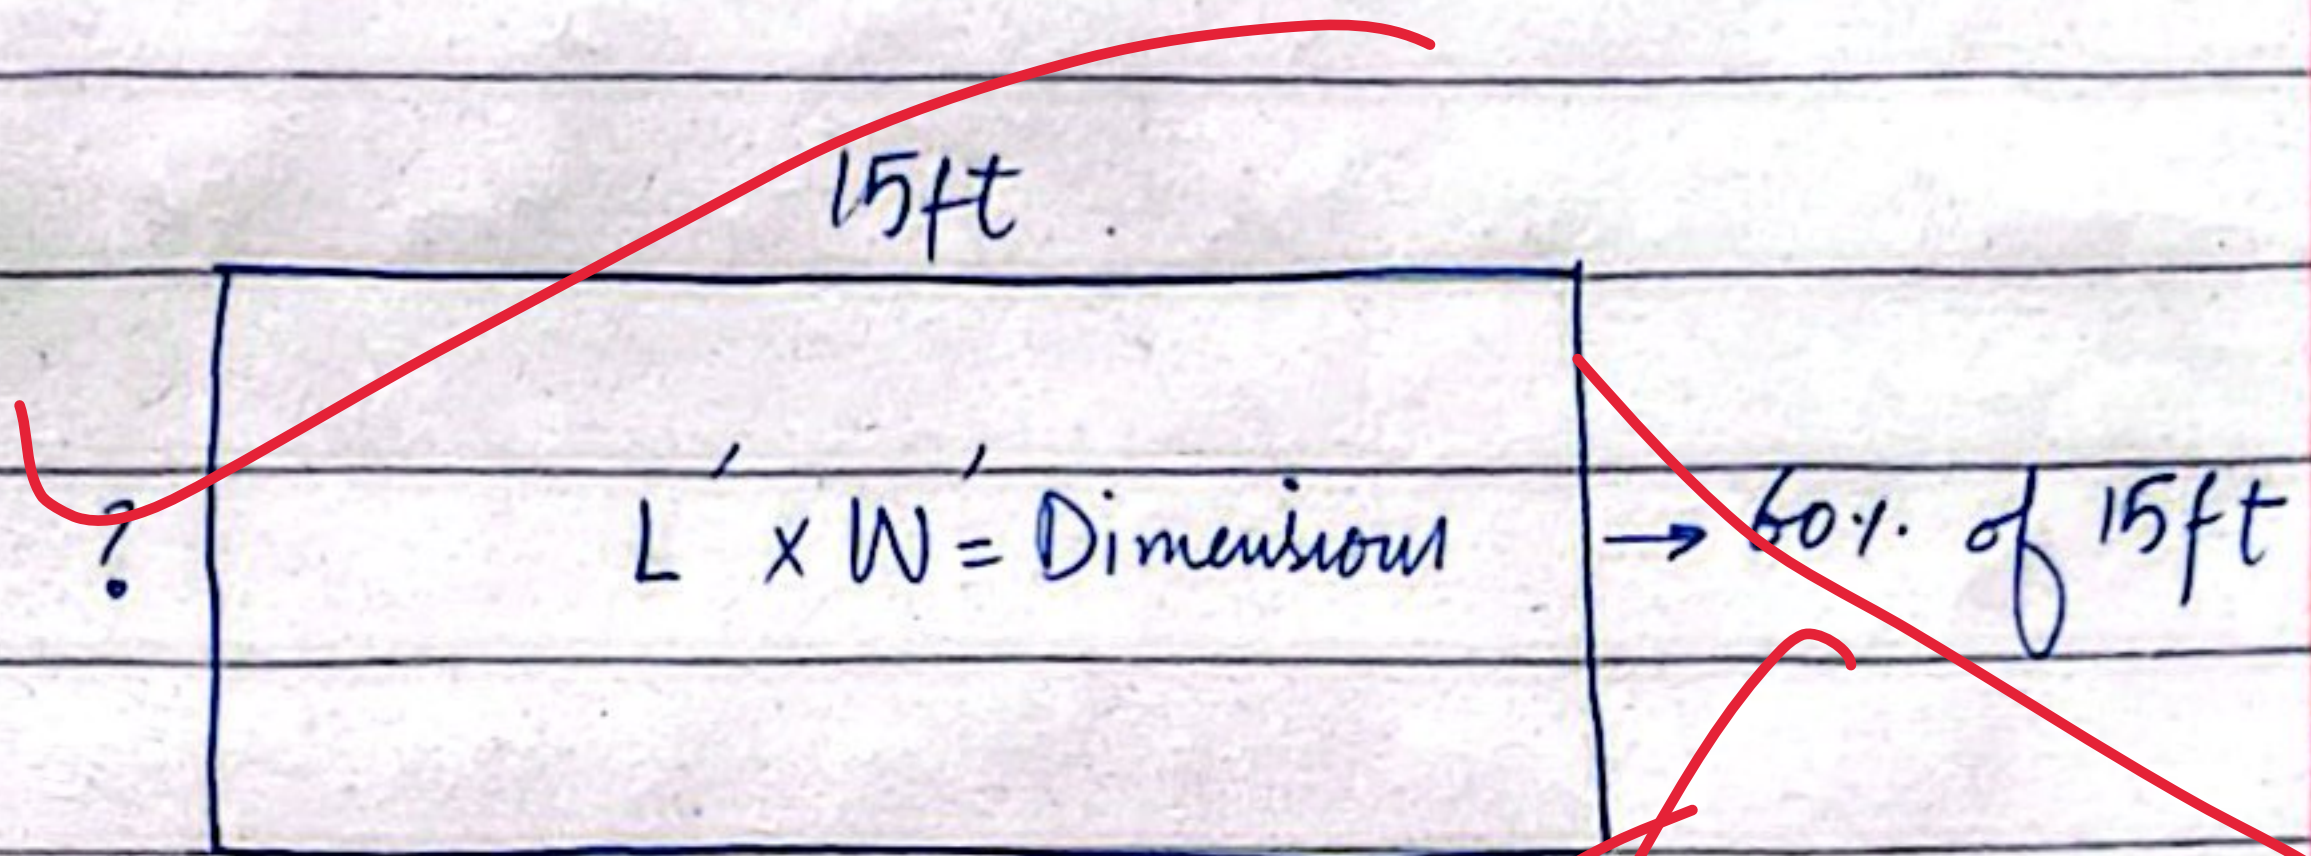 15ft
? L' x W' = Dimensions → 60% of 15ft